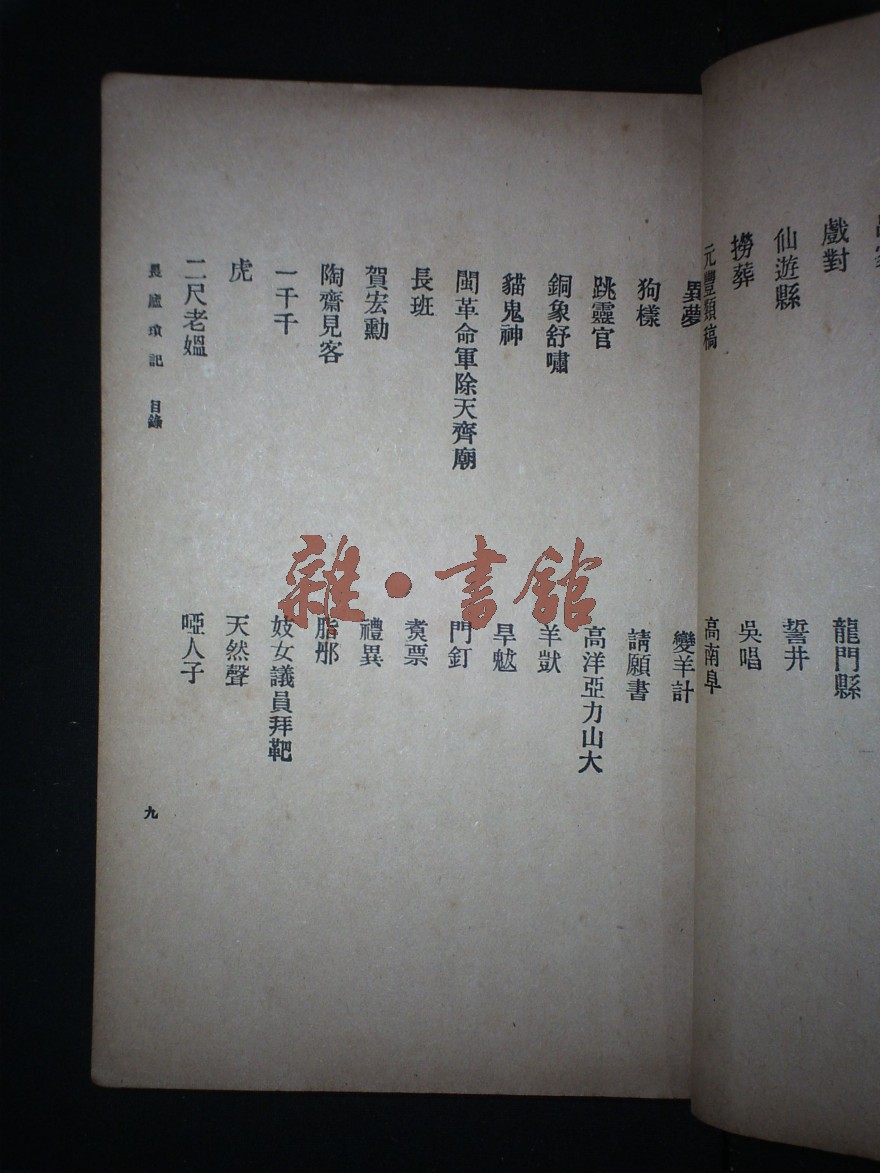 戲對
龍門縣
仙遊縣
誓井
撈葬
吳唱
元豐類稿
高南阜
夢
變羊計
狗樣
請願書
跳靈官
高洋亞力山大
銅象舒嘯
羊獃
貓鬼神
旱魃
閩革命軍除天齊廟
門釘
長班
票
賀宏勳
禮異
陶齋見客
脂
一千千
妓女議員拜靶
虎
天然聲
二尺老媼
啞人子
畏廬瑣記 目錄
九
雜·書館